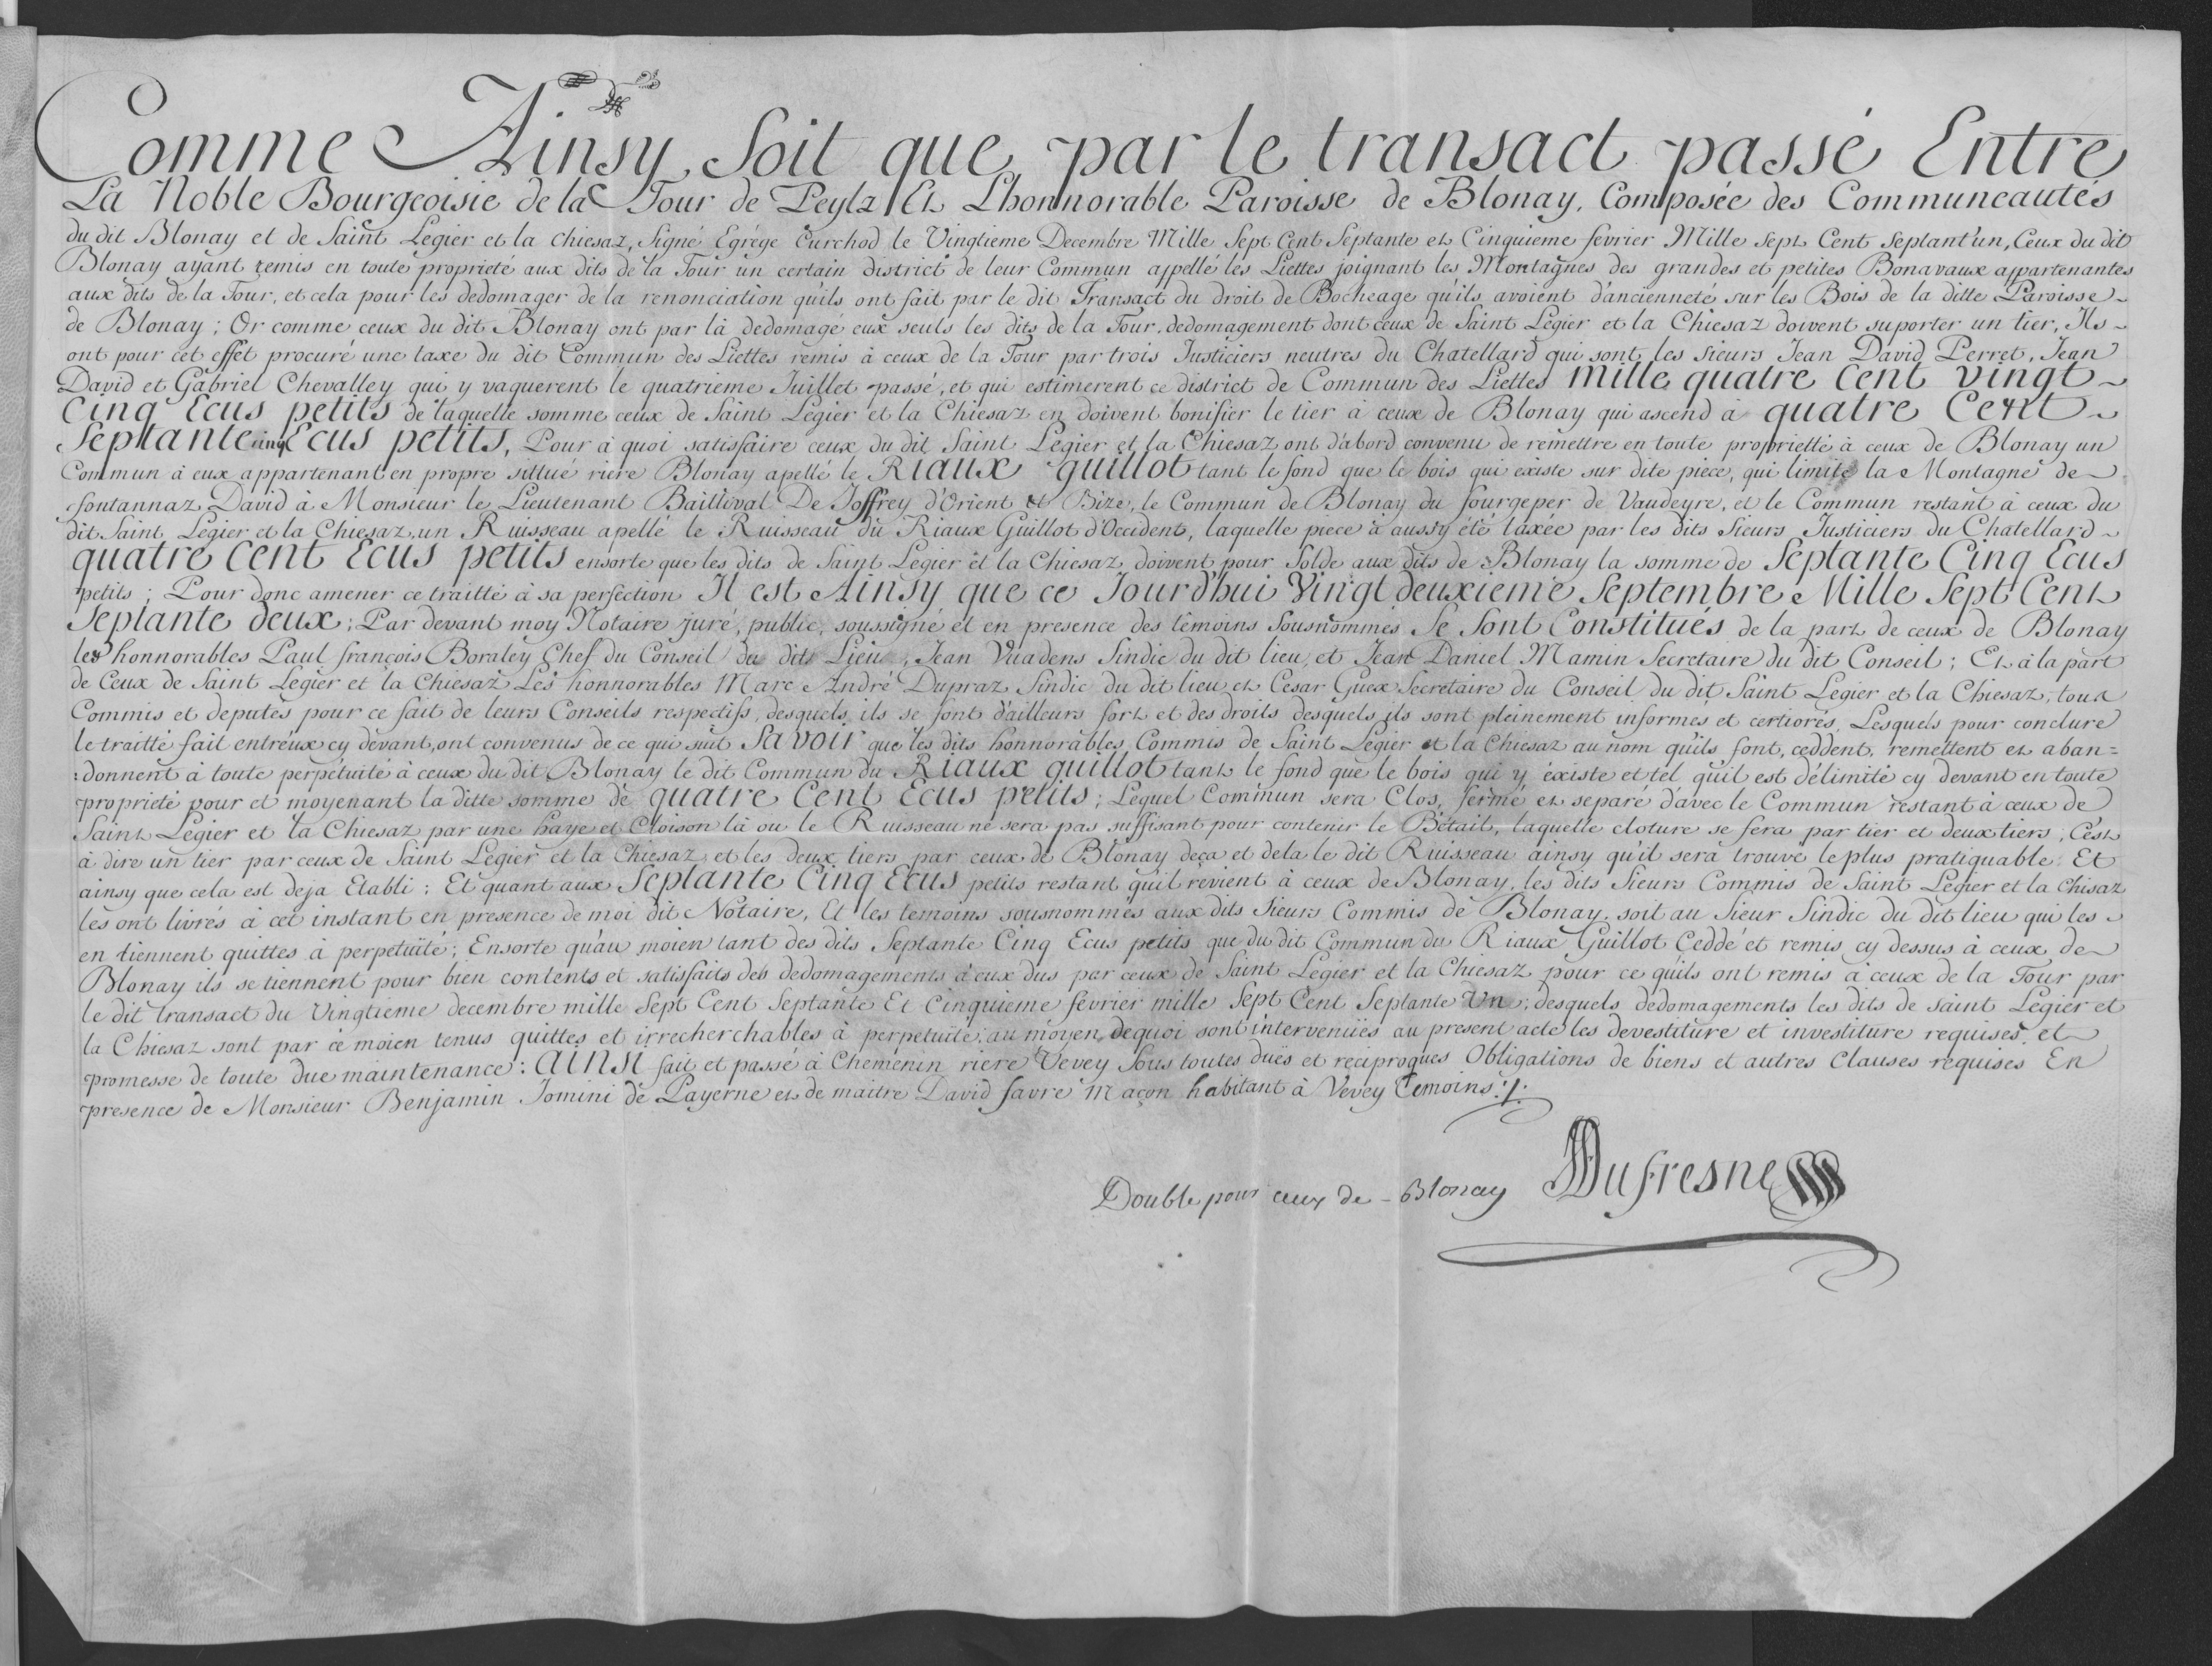 Comme Ainsy Soit que par le transact passé Entre
La Noble Bourgeoisie de la Tour de Peylz Et Lhonnorable Paroisse de Blonay, Composée des Communeautés
du dit Blonay et de Saint Legier et la Chiesaz, Signé Egrége Curchod le Vingtieme Decembre Mille Sept Cent Septante et Cinquieme fevrier Mille Sept Cent Septant'un, Ceux du dit
Blonay ayant remis en toute proprieté aux dits de la Tour un certain district de leur Commun appellé les Liettes joignant les Montagnes des grandes et petites Bonavaux appartenantes
aux dits de la Tour, et cela pour les dedomager de la renonciation qu'ils ont fait par le dit Transact du droit de Bocheage qu'ils avoient d'ancienneté sur les Bois de la ditte Paroisse
de Blonay; Or comme ceux du dit Blonay ont par là dedomagé eux seuls les dits de la Tour, dedomagement dont ceux de Saint Legier et la Chiesaz doivent suporter un tier, Ils
ont pour cet effet procuré une taxe du dit Commun des Liettes remis à ceux de la Tour par trois Justiciers neutres du Chatellard qui sont les Sieurs Jean David Perret, Jean
David et Gabriel Chevalley qui y vaquerent le quatrieme Juillet passé, et qui estimerent ce district de Commun des Liettes Mille quatre Cent Vingt
Cinq Ecus petits de laquelle somme ceux de Saint Legier et la Chiesaz en doivent bonifier le tier à ceux de Blonay qui ascend à quatre Cent
Septante cinq Ecus petits, Pour à quoi satisfaire ceux du dit Saint Legier et la Chiesaz ont d'abord convenu de remettre en toute proprietté à ceux de Blonay un
Commun à eux appartenant en propre sittué riere Blonay apellé le Riaux Guillot tant le fond que le bois qui existe sur dite piece, qui limite la Montagne de
fontannaz David à Monsieur le Lieutenant Baillival De Joffrey d'Orient et Bize, le Commun de Blonay du fourgeper de Vaudeyre, et le Commun restant à ceux du
dit Saint Legier et la Chiesaz, un Ruisseau apellé le Ruisseau du Riaux Guillot d'Occident, laquelle piece à aussy été taxée par les dits Sieurs Justiciers du Chatellard
quatre Cent Ecus petits ensorte que les dits de Saint Legier et la Chiesaz doivent pour Solde aux dits de Blonay la somme de Septante Cinq Ecus
petits; Pour donc amener ce traitté à sa perfection Il est Ainsy que ce Jourd'hui Vingt deuxieme Septembre Mille Sept Cent
Septante deux; Par devant moy Notaire juré, public, soussigné et en presence des têmoins Sousnommés Se Sont Constitués de la part de ceux de Blonay
les honnorables Paul françois Boraley Chef du Conseil du dits Lieu, Jean Vuadens Sindic du dit lieu, et Jean Daniel Mamin Secretaire du dit Conseil; Et à la part
de Ceux de Saint Legier et la Chiesaz Les honnorables Marc André Dupraz Sindic du dit lieu et Cesar Guex Secretaire du Conseil du dit Saint Legier et la Chiesaz, tous
Commis et deputés pour ce fait de leurs Conseils respectifs, desquels ils se font d'ailleurs fort et des droits desquels ils sont pleinement informés et certiorés, Lesquels pour conclure
le traitté fait entr'eux cy devant, ont convenus de ce qui suit Savoir que les dits honnorables Commis de Saint Legier et la Chiesaz au nom qu'ils font, ceddent, remettent et aban=
:donnent à toute perpétuité à ceux du dit Blonay le dit Commun du Riaux guillot tant le fond que le bois qui y éxiste et tel qu'il est délimité cy devant en toute
proprieté pour et moyenant la ditte somme de quatre Cent Ecus petits; Lequel Commun sera Clos, fermé et separé d'avec le Commun restant à ceux de
Saint Legier et la Chiesaz par une haye et Cloison là ou le Ruisseau ne sera pas suffisant pour contenir le Bétail, laquelle cloture se fera par tier et deux tiers, C'est
à dire un tier par ceux de Saint Legier et la Chiesaz, et les deux tiers par ceux de Blonay deça et dela le dit Ruisseau ainsy qu'il sera trouvé le plus pratiquable. Et
ainsy que cela est deja Etabli: Et quant aux Septante Cinq Ecus petits restant qu'il revient à ceux de Blonay, les dits Sieurs Commis de Saint Legier et la Chisaz
les ont livrés à cet instant en presence de moi dit Notaire, Et les temoins sousnommés aux dits Sieurs Commis de Blonay, soit au Sieur Sindic du dit lieu qui les
en tiennent quittes à perpetuité; Ensorte qu'au moien tant des dits Septante Cinq Ecus petits que du dit Commun du Riaux Guillot Ceddé et remis cy dessus à ceux de
Blonay ils se tiennent pour bien contents et satisfaits des dedomagements à eux dus par ceux de Saint Legier et la Chiesaz pour ce qu'ils ont remis à ceux de la Tour par
le dit transact du Vingtieme decembre mille Sept Cent Septante Et Cinquieme fevrier mille Sept Cent Septante Un; desquels dedomagements les dits de Saint Legier et
la Chiesaz sont par ce moien tenus quittes et irrecherchables à perpetuité; au moyen dequoi sont intervenüés au present acte les devestiture et investiture requises, et
promesse de toute due maintenance: Ainsi fait et passé à Chemenin riere Vevey Sous toutes duës et reciproques Obligations de biens et autres Clauses requises En
presence de Monsieur Benjamin Jomini de Payerne et de maitre David favre Maçon habitant à Vevey Temoins:/:
Double pour ceux de Blonay Dufresne